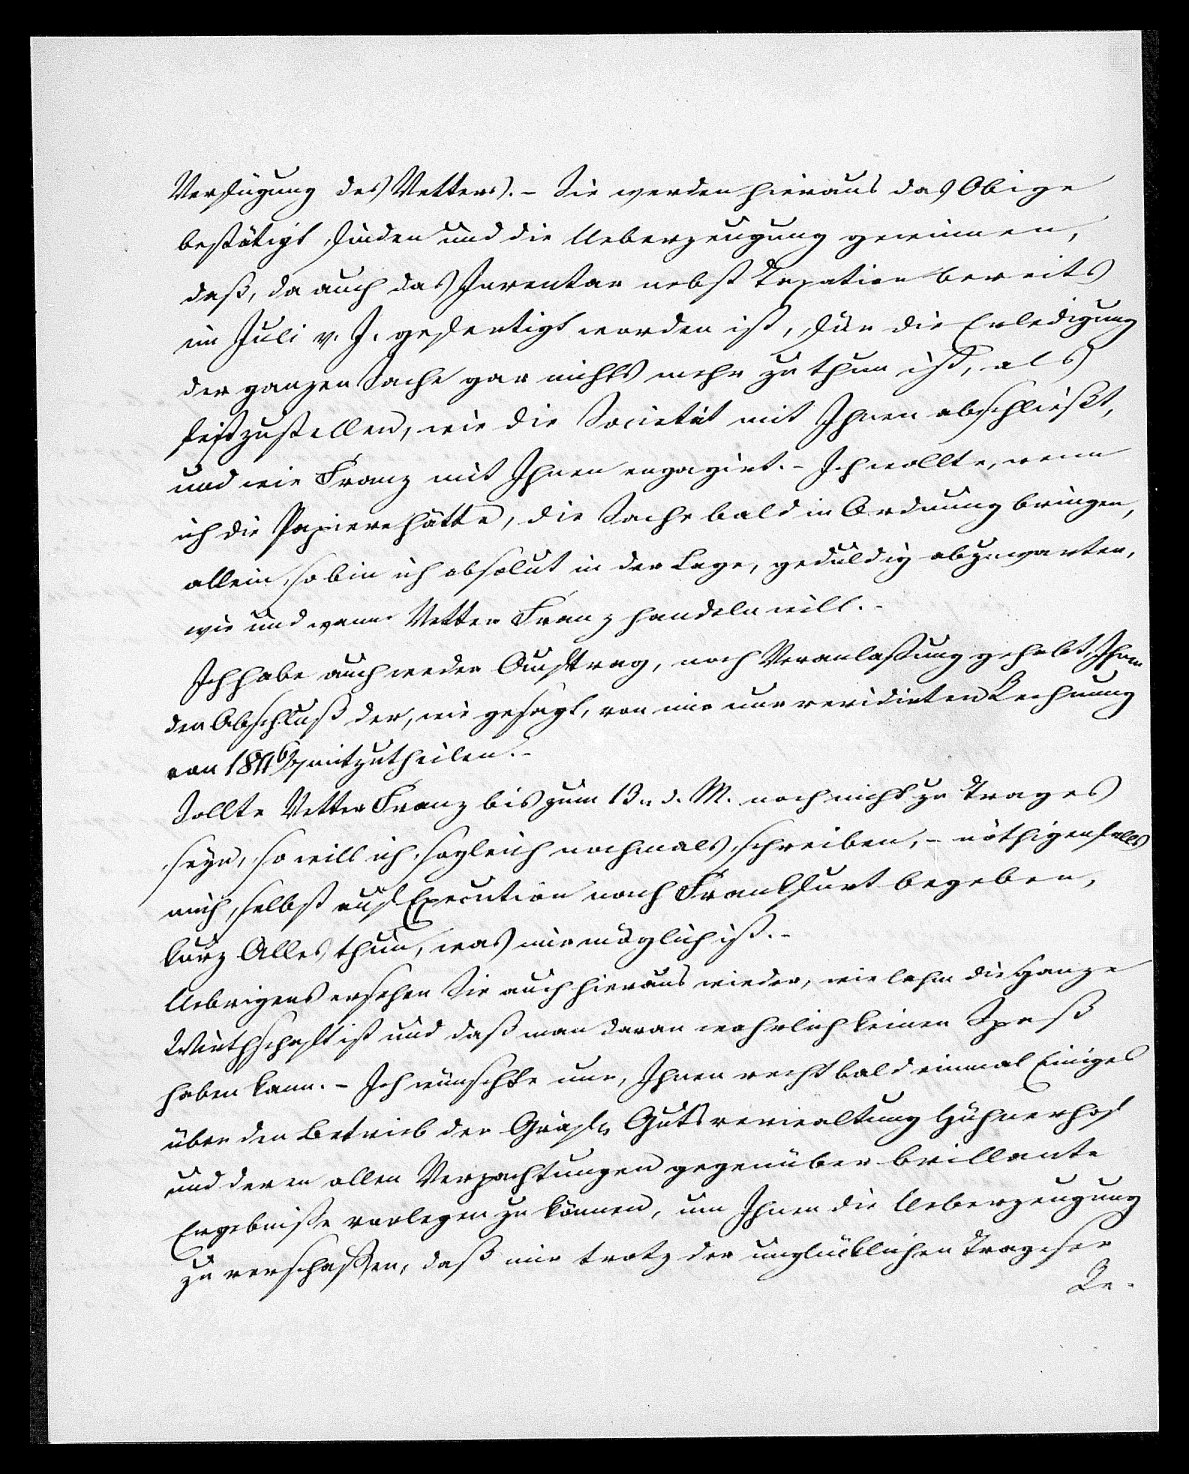 Verfügung des Vetters. – Sie werden hieraus das Obige
bestätigt finden und die Ueberzeugung gewinnen,
daß, da auch das Inventar nebst Taxation bereits
im Juli v. J. gefertigt worden ist, für die Erledigung
der ganzen Sache gar nichts mehr zu thun ist, als
festzustellen, wie die Societät mit Ihnen abschließt,
und wie Franz mit Ihnen engagirt. – Ich wollte, wenn
ich die Papiere hätte, die Sache bald in Ordnung bringen,
allein so bin ich absolut in der Lage, geduldig abzuwarten,
wie und wann Vetter Franz handeln will. –
Ich habe auch weder Auftrag, noch Veranlaßung gehabt, Ihnen
den Abschluß der, wie gesagt, von mir nur revidirten Rechnung
von mitzutheilen. –
Sollte Vetter Franz bis zum 13. d. M. noch nicht zu Trages
seyn, so will ich sogleich nochmals schreiben, – nöthigenfalls
mich selbst auf Execution nach Frankfurt begeben,
kurz Alles thun, was mir möglich ist. –
Uebrigens ersehen Sie auch hieraus wieder, wie lahm die ganze
Wirthschaft ist und daß man daran wahrlich keinen Spaß
haben kann. – Ich wünschte nur, Ihnen recht bald einmal Einiges
über den Betrieb der Gräfl. Gutsverwaltung Hühnerhof
und deren allen Verpachtungen gegenüber brillante
Ergebniße vorlegen zu können, um Ihnen die Ueberzeugung
zu verschaffen, daß wir trotz der unglücklichen Trageser